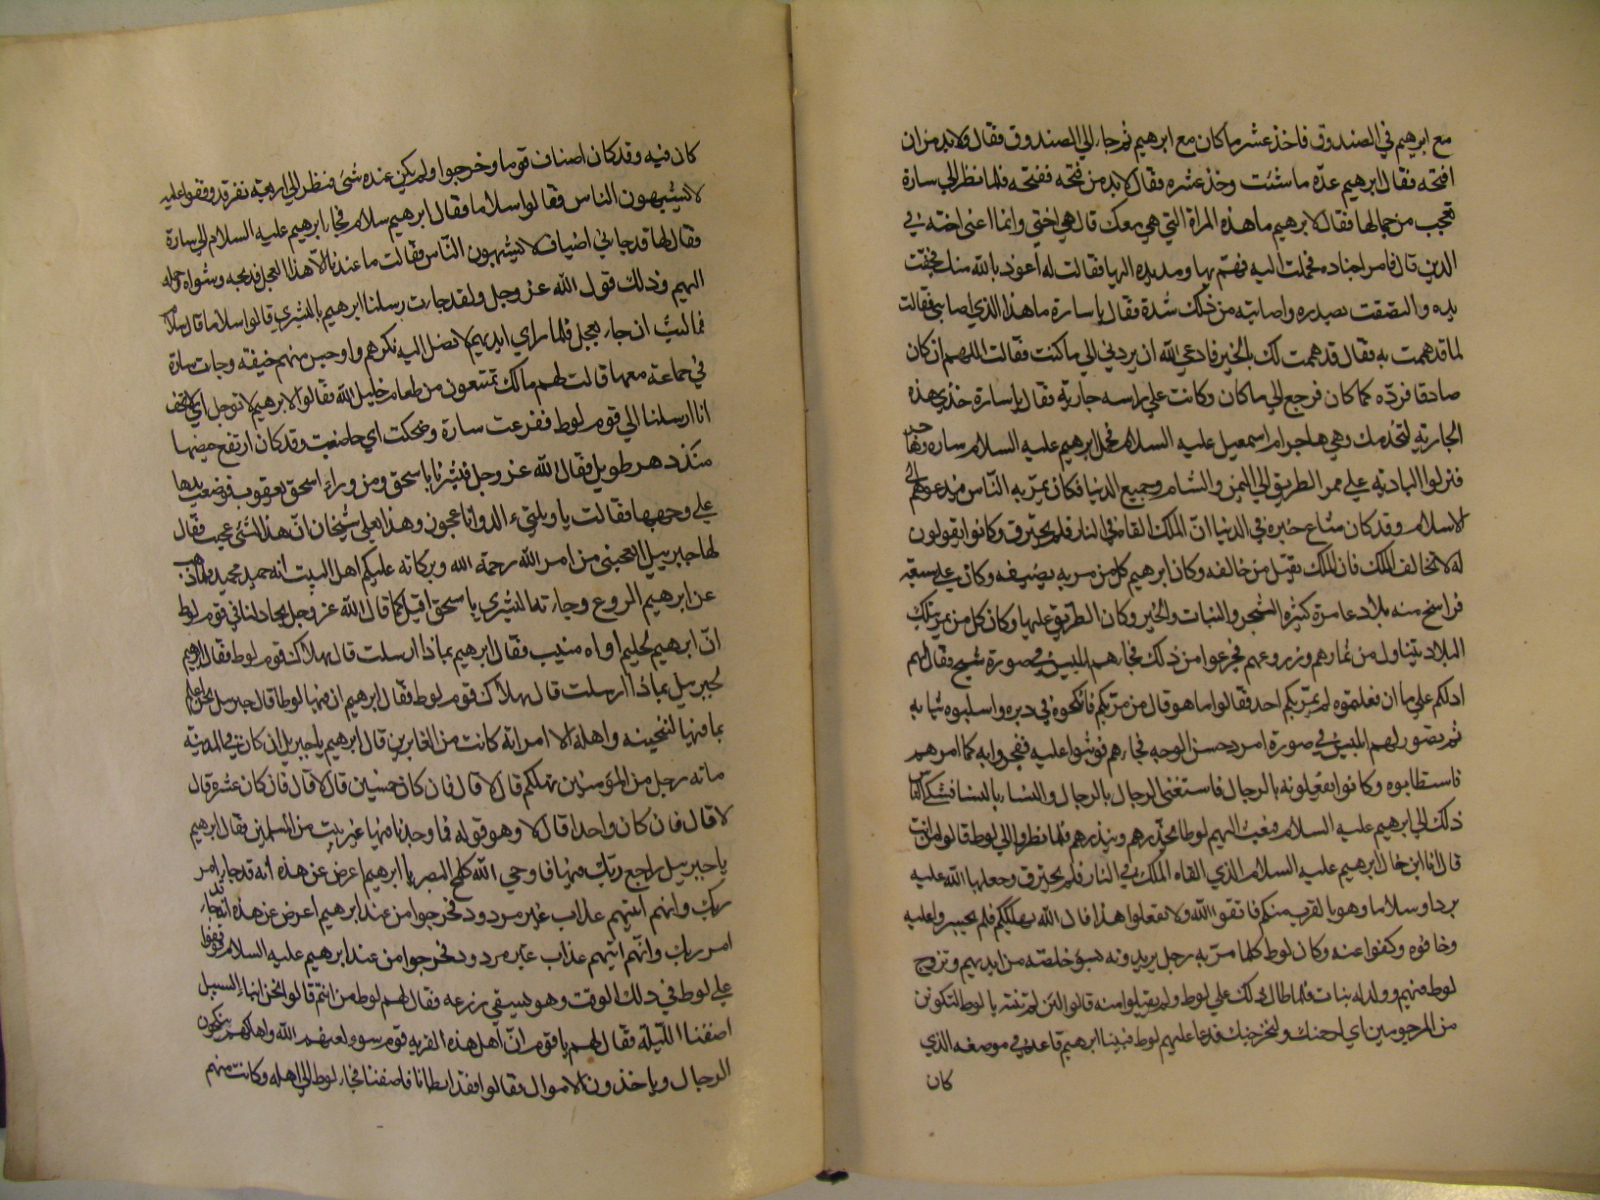 مع ابرهيم في الصندوق فاخذ عشر ما كان مع ابرهيم ثم جاء الي الصندوق فقال ولا بد من ان
افتحه فقال ابرهيم عدّه ما شئت وخذ عشره فقال لا بد من فتحه ففتحه فلما نظر الي سارة
تعجب من جمالها فقال لابرهيم ما هذه المراة التي هي معك قال هي اختي وانما اعنى اخته في
الدين قال فامر اجناده فحملت اليه فهمّ بها ومد يده اليها فقالت له اعوذ بالله منك فجفت
يده والتصقت بصدره واصابته من ذلك شدة فقال يا سارة ما هذا الذي اصابني فقالت
لما قد هممت به فقال قد هممت لك بالخير فادعي الله ان يردني الي ما كنت فقالت اللهم ان كان
صادقا فردّه كما كان فرجع الي ما كان وكانت علي راسه جارية فقال يا سارة خذي هذه
الجارية لتخدمك وهي هاجر ام اسمعيل عليه السلام فحمل ابرهيم عليه السلام سارة وهاجر
فنزلوا البادية علي ممر الطريق الي اليمن والشام وجميع الدنيا فكان يمرّ به النّاس فيدعوهم الي
الاسلام وقد كان شاع خبره في الدنيا انّ الملك القاه في النار فلم يحترق وكانوا يقولون
له لا تخالف الملك فان الملك يقتل من خالفه وكان ابرهيم كل من مر به يضيفه وكان علي سبعة
فراسخ منه بلاد عامرة كثيرة الشجر والنبات والخير وكان الطريق عليها وكان كل من يمر بتلك
البلاد يتناول من ثمارهم وزروعهم فجزعوا من ذلك فجاءهم ابليس في صورة شيخ فقال لهم
ادلكم علي ما ان فعلتموه لم يمرّ بكم احد فقالوا ما هو قال من مرّ بكم فانكحوه في دبره واسلبوه ثيابه
ثم تصور لهم ابليس في صورة امرد حسن الوجه فجاءهم فوثبوا عليه ففجروا به كما امرهم
فاستطابوه وكانوا يفعلونه بالرجال فاستغنى الرجال بالرجال والنساء بالنسا فشكي الناس
ذلك الي ابرهيم عليه السلام فبعث اليهم لوطا يحذّرهم وينذرهم فلما نظروا الي لوط قالوا من انت
قال انا ابن خال ابرهيم عليه السلام الذي القاه الملك في النار فلم يحترق وجعلها الله عليه
بردا وسلاما وهو بالقرب منكم فاتقوا الله ولا تفعلوا هذا فان الله يهلككم فلم يجسروا عليه
وخافوه وكفوا عنه وكان لوط كلما مرّ به رجل يريدونه بسوء خلصه من ايديهم وتزوج
لوط منهم وولد له بنات فلما طال ذلك علي لوط ولم يقبلوا منه قالوا لئن لم تنته يا لوط لتكونن
من المرجومين اي لنرجمنك ولنخرجنك فدعا عليهم لوط فبينا ابرهيم قاعد في موضعه الذي
كان
كان فيه وقد كان اضاف قوما وخرجوا ولم يكن عنده شئ فنظر الي اربعة نفر قد وقفوا عليه
لا يشبهون الناس فقالوا سلاما فقال ابرهيم سلام فجاء ابرهيم عليه السلام الي سارة
فقال لها قد جاءني اضياف لا يشبهون النّاس فقالت ما عندنا الّا هذا العجل فذبحه وشواه وحمله
اليهم وذلك قول الله عز وجل ولقد جاءت رسلنا ابرهيم بالبشري قالوا سلاما قال سلام
فما لبث ان جاء بعجل فلما راي ايديهم لا تصل اليه نكرهم واوجس منهم خيفة وجاءت سارة
في جماعة معها قالت لهم ما لكم تمتنعون من طعام خليل الله فقالوا لابرهيم لا توجل اي لا تخف
انا ارسلنا الي قوم لوط ففزعت سارة وضحكت اي حاضت وقد كان ارتفع حيضها
منذ دهر طويل فقال الله عز وجل فبشرناها باسحق ومن وراء اسحق يعقوب فوضعت يدها
علي وجهها فقالت يا ويلتي ءالد وانا عجوز وهذا بعلي شيخا ان هذا لشئ عجيب فقال
لها جبرييل اتعجبين من امر الله رحمة الله وبركاته عليكم اهل البيت انه حميد مجيد فلما ذهب
عن ابرهيم الروع وجاءته البشري باسحق اقبل كما قال الله عز وجل يجادلنا في قوم لوط
انّ ابرهيم لحليم اواه منيب فقال ابرهيم بماذا ارسلت قال بهلاك قوم لوط فقال ابرهيم
لجبرييل بماذا ارسلت قال بهلاك قوم لوط فقال ابرهيم ان فيها لوطا قال جبرييل نحن اعلم
بما فيها لننجينه واهله الا امراته كانت من الغابرين قال ابرهيم يا جبرييل ان كان في المدينة
مائة رجل من المؤمنين تهلكهم قال لا قال فان كان خمسين قال لا قال فان كان عشرة قال
لا قال فان كان واحدا قال لا وهو قوله فما وجدنا فيها غير بيت من المسلمين فقال ابرهيم
يا جبرييل راجع ربّك فيها فاوحي الله كلمح البصر يا ابرهيم اعرض عن هذا انه قد جاء امر
ربك وانهم اتيهم عذاب غير مردود فخرجوا من عند ابرهيم اعرض عن هذا انه قد جاء
امر ربك وانّهم اتيهم عذاب غير مردود فخرجوا من عند ابرهيم عليه السلام فوقفوا
علي لوط في ذلك الوقت وهو يسقي زرعه فقال لهم لوط من انتم قالوا نحن ابناء السبيل
اضفنا الليلة فقال لهم يا قوم انّ اهل هذه القرية قوم سوء لعنهم الله واهلكهم ينكحون
الرجال وياخذون الاموال فقالوا فقد ابطانا فاضفنا فجاء لوط الي اهله وكانت منهم